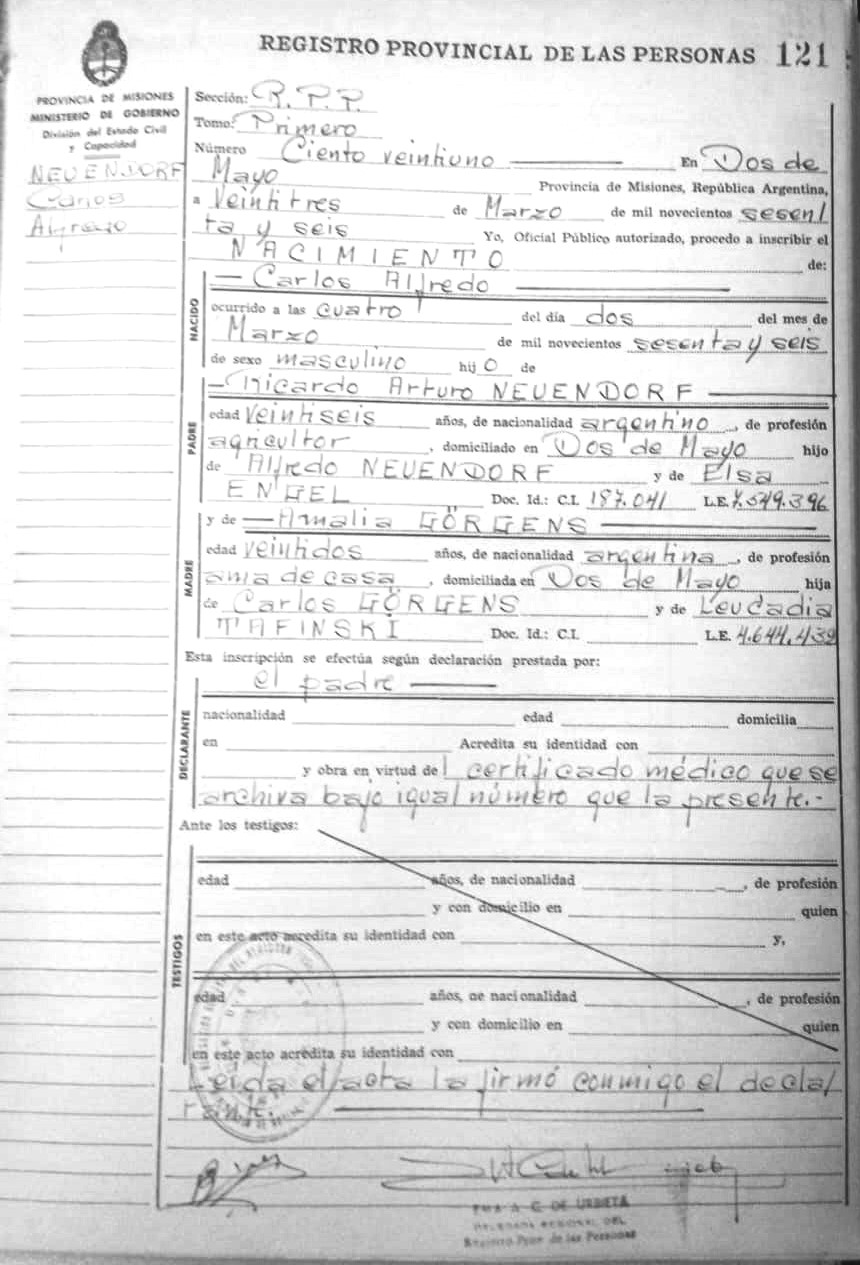 REGISTRO PROVINCIAL DE LAS PERSONAS 121
PROVINCIA DE MISIONES
MINISTERIO DE GOBIERNO
División del Estado Civil
y Capacidad
NEUENDORF
Carlos
Alfredo
Sección: R.P.P.
Tomo: Primero
Número Ciento veintiuno En Dos de
Mayo Provincia de Misiones, República Argentina,
a Veintitres de Marzo de mil novecientos sesen/
ta y seis Yo, Oficial Público autorizado, procedo a inscribir el
NACIMIENTO de:
NACIDO
— Carlos Alfredo —
ocurrido a las cuatro del día dos del mes de
Marzo de mil novecientos sesenta y seis
de sexo masculino hijo de
PADRE
— Ricardo Arturo NEUENDORF —
edad veintiseis años, de nacionalidad argentino, de profesión
agricultor, domiciliado en Dos de Mayo hijo
de Alfredo NEUENDORF y de Elsa
ENGEL Doc. Id.: C.I. 187.041 L.E. 7.549.396
MADRE
y de — Amalia GÖRGENS —
edad veintidos años, de nacionalidad argentina, de profesión
ama de casa, domiciliada en Dos de Mayo hija
de Carlos GÖRGENS y de Leucadia
TAFINSKI Doc. Id.: C.I. L.E. 4.644.432
Esta inscripción se efectúa según declaración prestada por:
DECLARANTE
el padre —
nacionalidad edad domicilia
en Acredita su identidad con
y obra en virtud del certificado médico que se
archiva bajo igual número que la presente.-
Ante los testigos:
TESTIGOS
edad años, de nacionalidad , de profesión
y con domicilio en quien
en este acto acredita su identidad con y,
edad años, de nacionalidad , de profesión
y con domicilio en quien
en este acto acredita su identidad con
Leida el acta la firmó conmigo el decla/
rante.
A. G. DE URBIETA
DELEGADA REGIONAL DEL
Registro Pcial. de las Personas